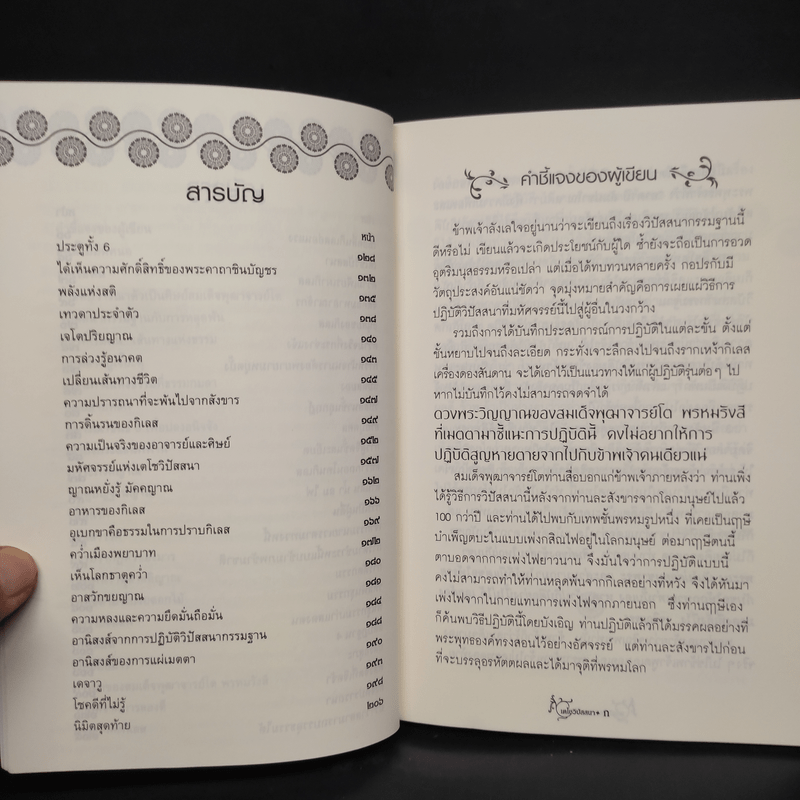 สารบัญ
หน้า
ประตูทั้ง 6 ๑๒๘
ได้เห็นความศักดิ์สิทธิ์ของพระคาถาชินบัญชร ๑๓๒
พลังแห่งสติ ๑๓๕
เทวดาประจำตัว ๑๓๘
เจโตปริยญาณ ๑๔๐
การล่วงรู้อนาคต ๑๔๓
เปลี่ยนเส้นทางชีวิต ๑๔๕
ความปรารถนาที่จะพ้นไปจากสังขาร ๑๔๗
การดิ้นรนของกิเลส ๑๔๙
ความเป็นจริงของอาจารย์และศิษย์ ๑๕๒
มหัศจรรย์แห่งเตโชวิปัสสนา ๑๕๗
ญาณหยั่งรู้ มัคคญาณ ๑๖๒
อาหารของกิเลส ๑๖๖
อุเบกขาคือธรรมในการปราบกิเลส ๑๖๙
คว่ำเมืองพยาบาท ๑๗๒
เห็นโลกธาตุคว่ำ ๑๘๐
อาสวักขยญาณ ๑๘๑
ความหลงและความยึดมั่นถือมั่น ๑๘๔
อานิสงส์จากการปฏิบัติวิปัสสนากรรมฐาน ๑๘๘
อานิสงส์ของการแผ่เมตตา ๑๙๐
เดจาวู ๑๙๓
โชคดีที่ไม่รู้ ๑๙๘
นิมิตสุดท้าย ๒๐๖
คำชี้แจงของผู้เขียน
ข้าพเจ้าลังเลใจอยู่นานว่าจะเขียนถึงเรื่องวิปัสสนากรรมฐานนี้
ดีหรือไม่ เขียนแล้วจะเกิดประโยชน์กับผู้ใด ซ้ำยังจะถือเป็นการอวด
อุตริมนุสธรรมหรือเปล่า แต่เมื่อได้ทบทวนหลายครั้ง กอปรกับมี
วัตถุประสงค์อันแน่ชัดว่า จุดมุ่งหมายสำคัญคือการเผยแผ่วิธีการ
ปฏิบัติวิปัสสนาที่มหัศจรรย์นี้ไปสู่ผู้อื่นในวงกว้าง
รวมถึงการได้บันทึกประสบการณ์การปฏิบัติในแต่ละขั้น ตั้งแต่
ขั้นหยาบไปจนถึงละเอียด กระทั่งเจาะลึกลงไปจนถึงรากเหง้ากิเลส
เครื่องดองสันดาน จะได้เอาไว้เป็นแนวทางให้แก่ผู้ปฏิบัติรุ่นต่อๆ ไป
หากไม่บันทึกไว้คงไม่สามารถจดจำได้
ดวงพระวิญญาณของสมเด็จพุฒาจารย์โต พรหมรังสี
ที่เมตตามาชี้แนะการปฏิบัตินี้ คงไม่อยากให้การ
ปฏิบัติสูญหายตายจากไปกับข้าพเจ้าคนเดียวแน่
สมเด็จพุฒาจารย์โตท่านสื่อบอกแก่ข้าพเจ้าภายหลังว่า ท่านเพิ่ง
ได้รู้วิธีการวิปัสสนานี้หลังจากท่านละสังขารจากโลกมนุษย์ไปแล้ว
100 กว่าปี และท่านได้ไปพบกับเทพชั้นพรหมรูปหนึ่ง ที่เคยเป็นฤๅษี
บำเพ็ญตบะในแบบเพ่งกสิณไฟอยู่ในโลกมนุษย์ ต่อมาฤๅษีตนนี้
ตาบอดจากการเพ่งไฟยาวนาน จึงมั่นใจว่าการปฏิบัติแบบนี้
คงไม่สามารถทำให้ท่านหลุดพ้นจากกิเลสอย่างที่หวัง จึงได้หันมา
เพ่งไฟจากในกายแทนการเพ่งไฟจากภายนอก ซึ่งท่านฤๅษีเอง
ก็ค้นพบวิธีปฏิบัตินี้โดยบังเอิญ ท่านปฏิบัติแล้วก็ได้มรรคผลอย่างที่
พระพุทธองค์ทรงสอนไว้อย่างอัศจรรย์ แต่ท่านละสังขารไปก่อน
ที่จะบรรลุอรหัตตผลและได้มาจุติที่พรหมโลก
เตโชวิปัสสนา • ก